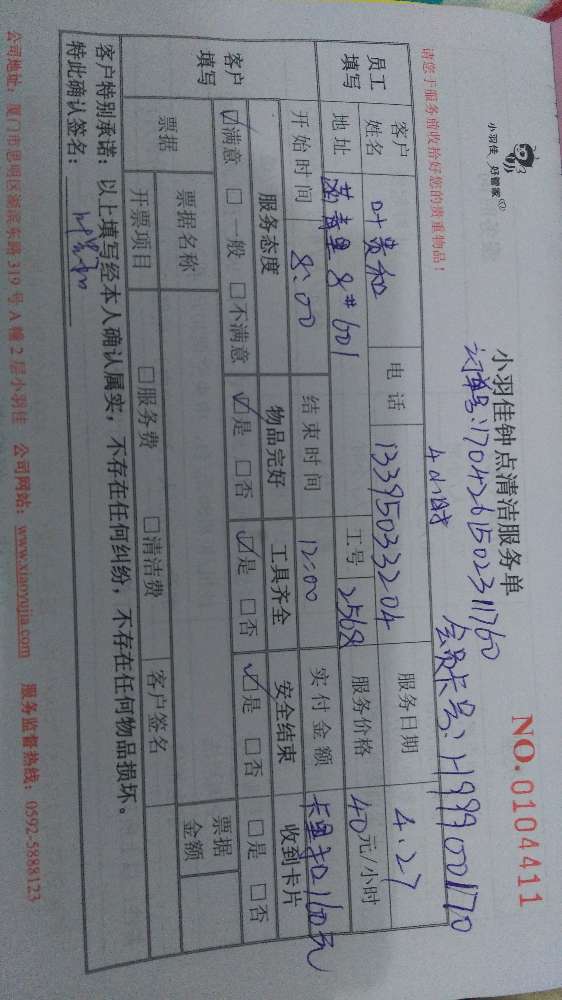 小羽佳 好管家
小羽佳钟点清洁服务单
NO.0104411
订单号:1704261502311760
会员卡号:H999001770
请您于服务前收拾好您的贵重物品!
4小时
员工填写
客户姓名 叶贵和 电话 13395033204 服务日期 4.27
地址 8#601 工号 2568 服务价格 40元/小时
开始时间 8:00 结束时间 12:00 实付金额 卡里扣160元
客户填写
服务态度 物品完好 工具齐全 安全结束 收到卡片
☑满意 □一般 □不满意 ☑是 □否 ☑是 □否 ☑是 □否 □是 □否
票据 票据名称 票据金额
开票项目 □服务费 □清洁费 客户签名
客户特别承诺:以上填写经本人确认属实,不存在任何纠纷,不存在任何物品损坏。
特此确认签名:叶贵和
公司地址:厦门市思明区湖滨东路319号A幢2层小羽佳 公司网站:www.xiaoyujia.com 服务监督热线:0592-5888123